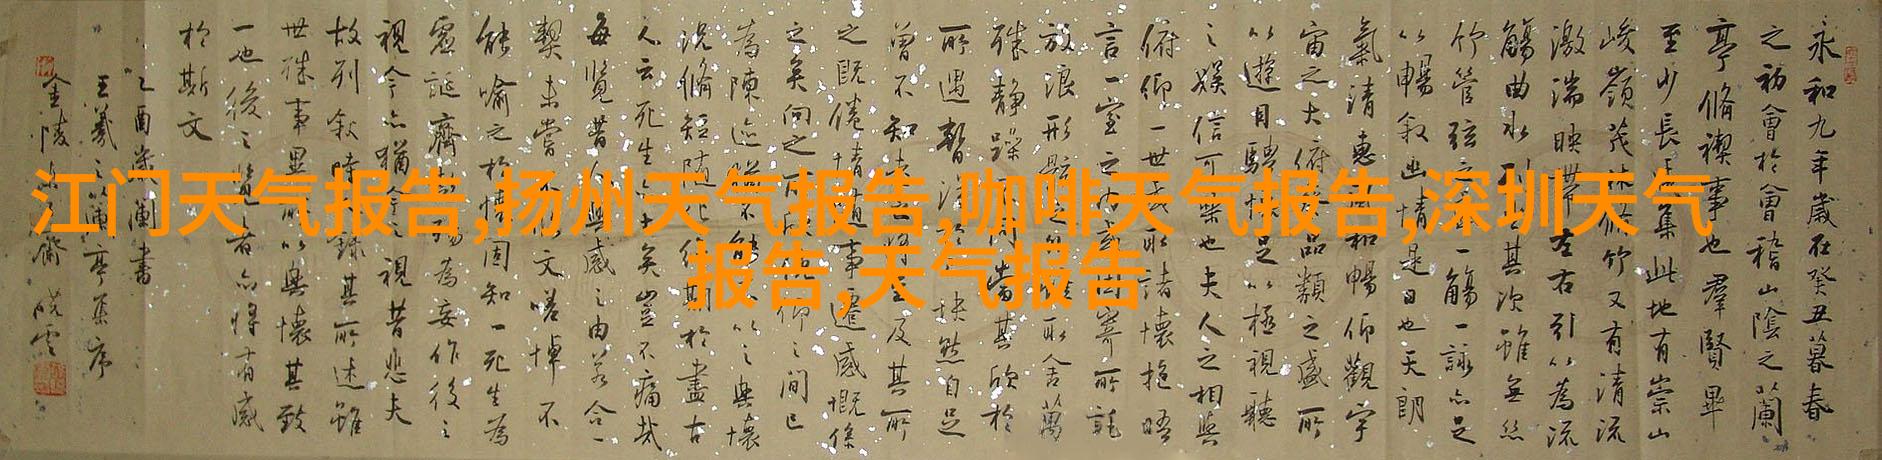 江门天气报告,扬州天气报告,咖啡天气报告,深圳天气
报告,天气报告
永和九年歲在癸丑暮春
之初會於會稽山陰之蘭
亭脩禊事也羣賢畢
至少長咸集此地有崇山
峻嶺茂林脩竹又有清流
激湍映帶左右引以為流
觴曲水列坐其次雖無絲
竹管弦之盛一觴一詠亦足
以暢敘幽情是日也天朗
氣清惠風和暢仰觀宇
宙之大俯察品類之盛所
以遊目騁懷足以極視聽
之娛信可樂也夫人之相與
俯仰一世或取諸懷抱晤
言一室之內或因寄所託
放浪形骸之外雖取舍萬
殊靜躁不同當其欣於
所遇暫得於己快然自足
曾不知老之將至及其所
之既倦情隨事遷感慨係
之矣向之所欣俛仰之間已
為陳迹猶不能不以之興懷
況脩短隨化終期於盡古
人云死生亦大矣豈不痛哉
每覽昔人興感之由若合一
契未嘗不臨文嗟悼不
能喻之於懷固知一死生為
虛誕齊彭殤為妄作後之
視今亦猶今之視昔悲夫
故列敘時人錄其所述雖
世殊事異所以興懷其致
一也後之覽者亦將有感
於斯文
乙酉蘭書
王羲之蘭亭集序
金陵齋